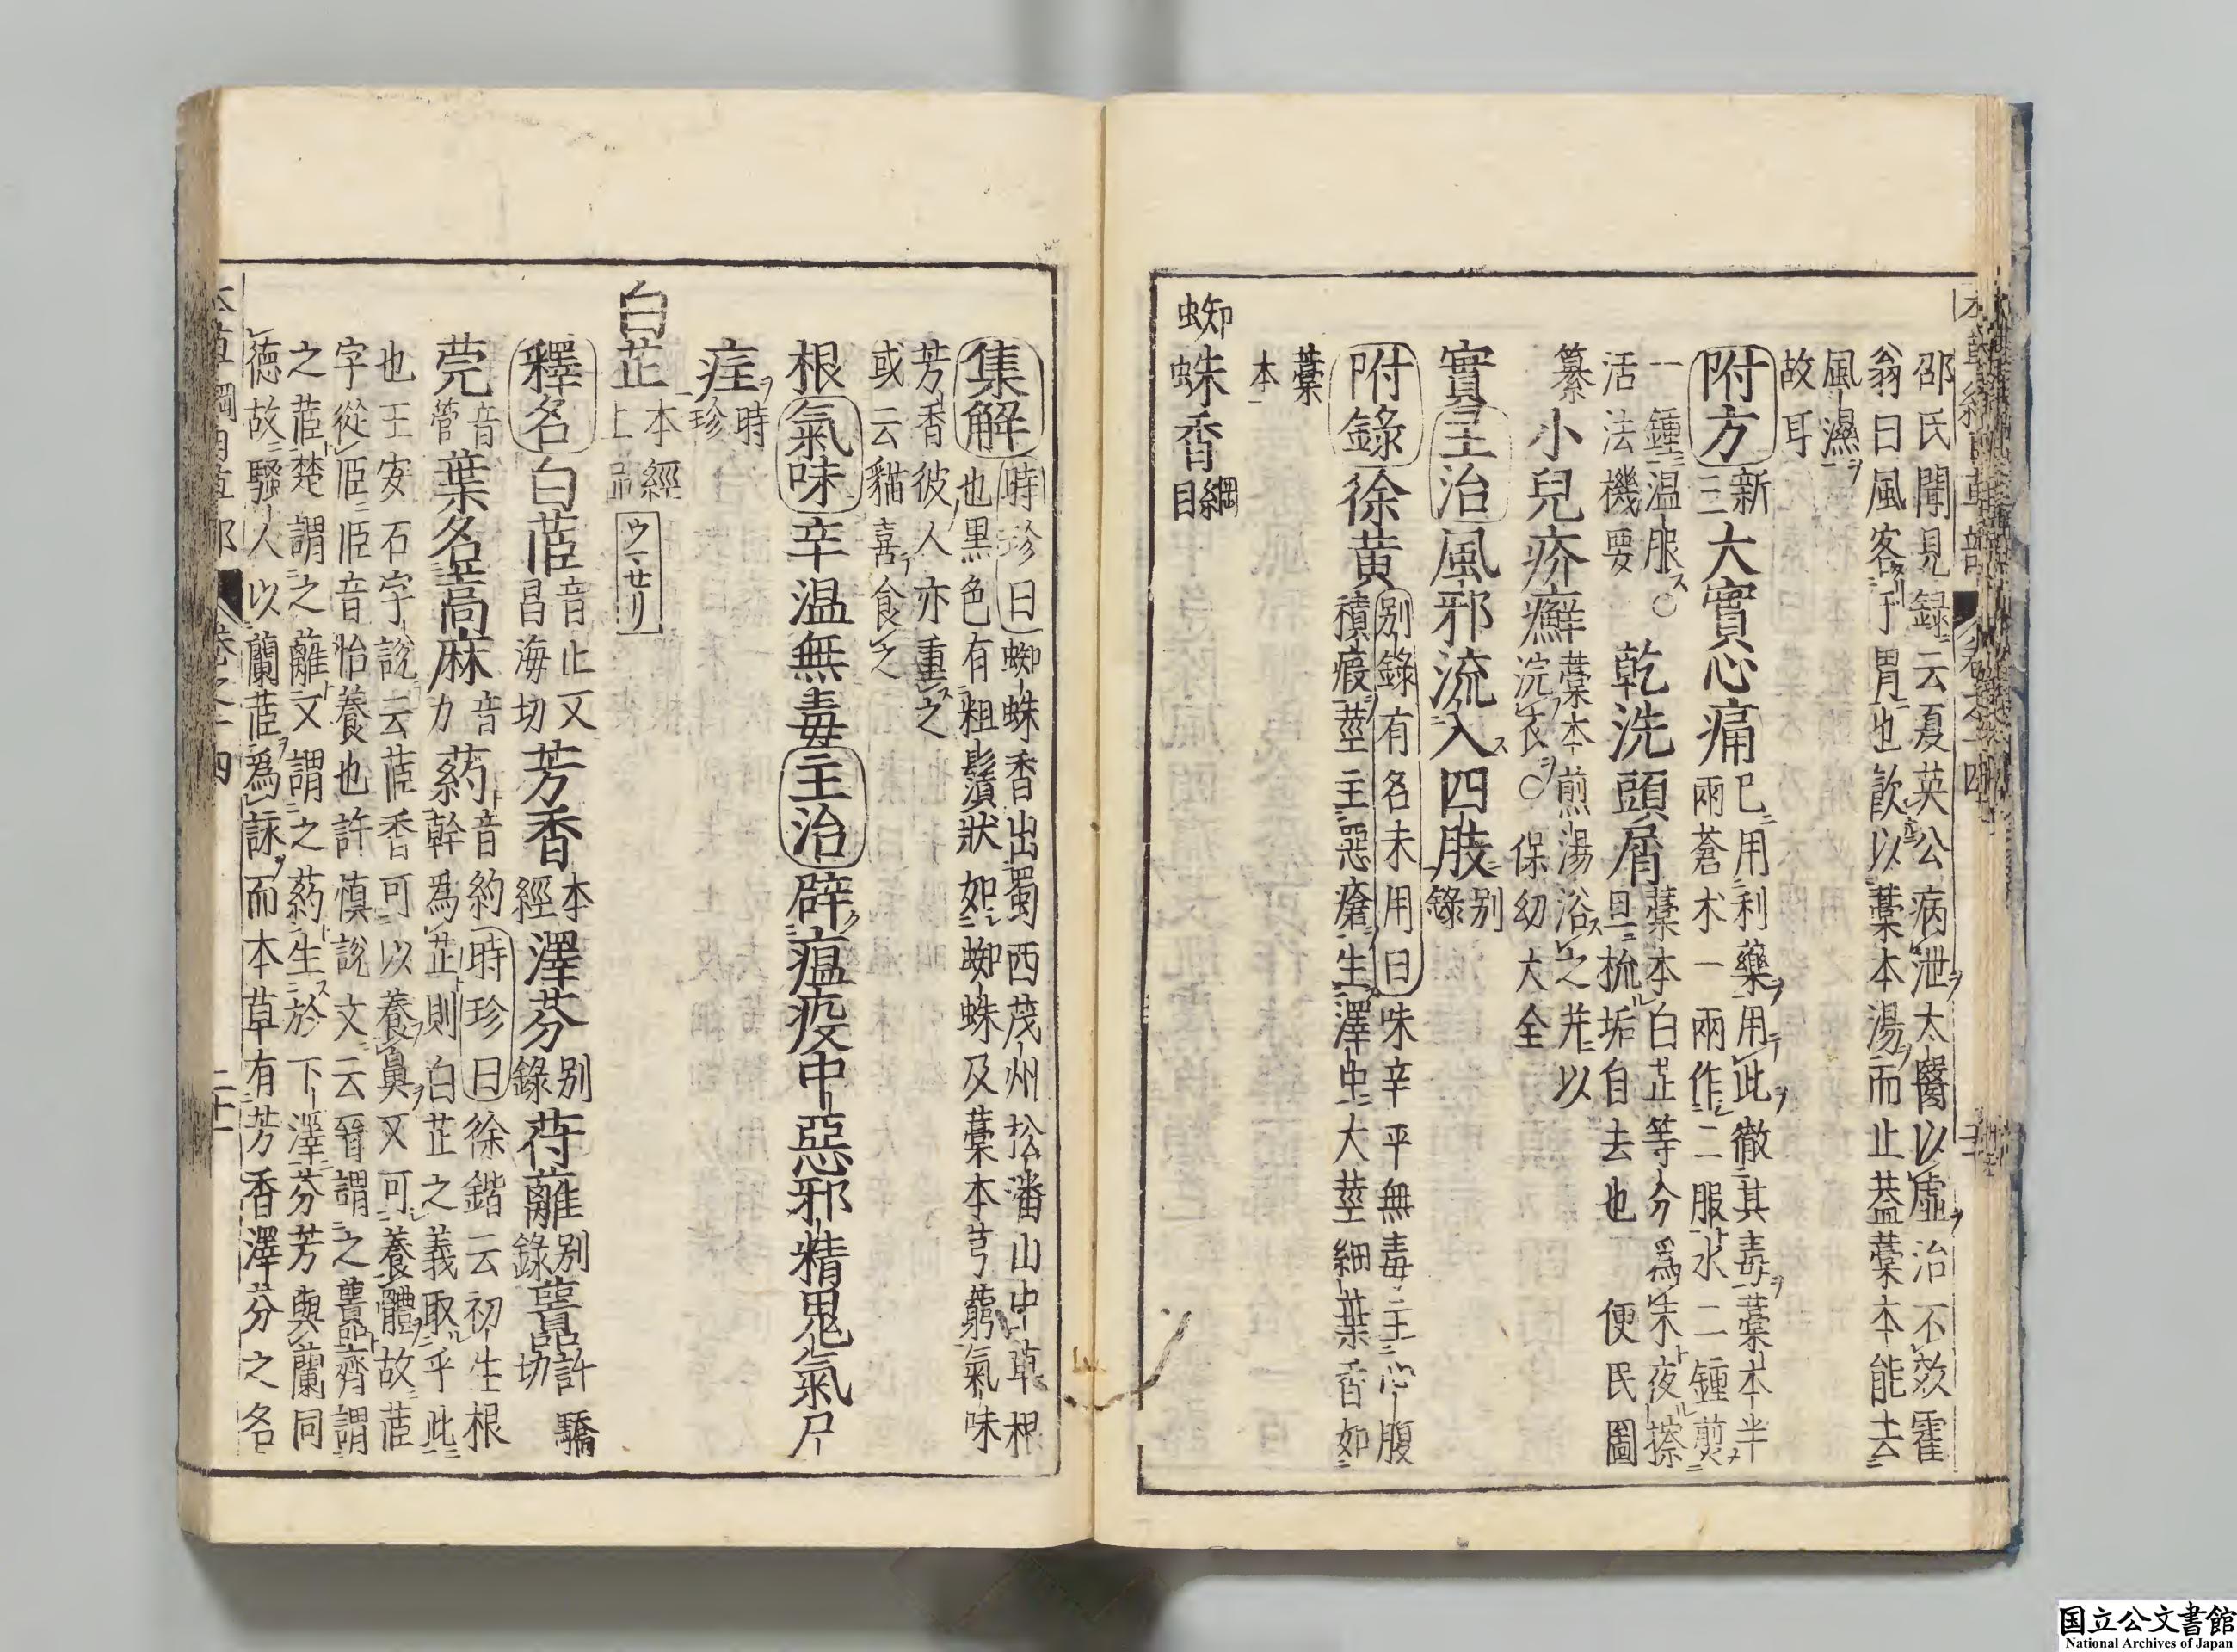 邵氏聞見録云夏英公病泄太醫以虛治不效霍
翁曰風客于胃也飮以藁本湯而止葢藁本能去
風濕
故耳
附方新三大實心痛已用利藥用此徹其毒藁本半
兩蒼术一兩作二服水二鍾煎
一鍾温服○
活法機要
乾洗頭屑藁本白芷等分爲末夜擦
旦梳垢自去也 便民圖
纂
小兒疥癬藁本煎湯浴之并以
浣衣○保幼大全
實主治風邪流入四肢别錄
附錄徐黄别錄有名未用曰味辛平無毒主心腹
積瘕莖主惡瘡生澤中大莖細葉香如
藁
本
蜘蛛香綱目
集解時珍曰蜘蛛香出蜀西茂州松潘山中草根
也黒色有粗鬚狀如蜘蛛及藁本芎藭氣味
芳香彼人亦重之
或云貓喜食之
根氣味辛温無毒主治辟瘟疫中惡邪精鬼氣尸
疰時珍
白芷本經上品ウマゼリ
釋名白茝音止又昌海切芳香本經澤芬别錄苻蘺别錄蘬許驕切
莞音菅葉名蒚麻音力葯音約幹爲芷則白芷之義取乎此
時珍曰徐鍇云初生根
也王安石字說云茝香可以養鼻又可養體故茝
字從𦣞𦣞音怡養也許慎說文云晉謂之蘬齊謂
之茝楚謂之蘺又謂之葯生於下澤芬芳與蘭同
德故騷人以蘭茝爲詠而本草有芳香澤芬之名
本草綱目草部 卷之十四
国立公文書館
National Archives of Japan